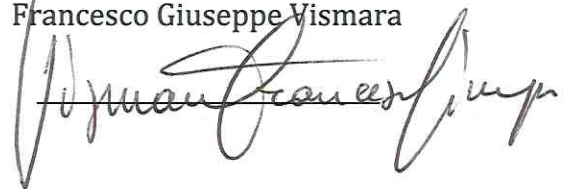 Francesco Giuseppe Vismara
Vismara Francesco Giuseppe